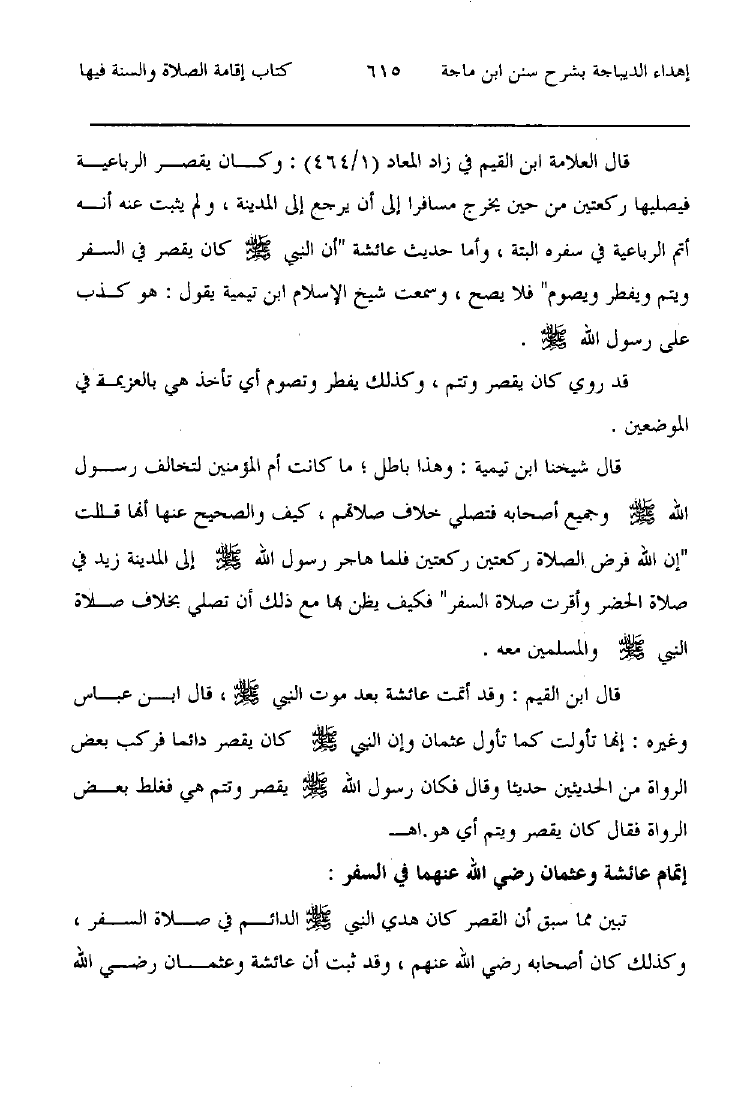 إهداء الديباجة بشرح سنن ابن ماجة ٦١٥ كتاب إقامة الصلاة والسنة فيها
قال العلامة ابن القيم في زاد المعاد (٤٦٤/١) : وكـــان يقصــر الرباعيـــة
فيصليها ركعتين من حين يخرج مسافرا إلى أن يرجع إلى المدينة ، ولم يثبت عنه أنـــه
أتم الرباعية في سفره البتة ، وأما حديث عائشة "أن النبي ﷺ كان يقصر في السفر
ويتم ويفطر ويصوم" فلا يصح ، وسمعت شيخ الإسلام ابن تيمية يقول : هو كـــذب
على رسول الله ﷺ .
قد روي كان يقصر وتتم ، وكذلك يفطر وتصوم أي تأخذ هي بالعزيمـــة في
الموضعين .
قال شيخنا ابن تيمية : وهذا باطل ؛ ما كانت أم المؤمنين لتخالف رســـول
الله ﷺ وجميع أصحابه فتصلي خلاف صلاتهم ، كيف والصحيح عنها أنها قـــالت
"إن الله فرض الصلاة ركعتين ركعتين فلما هاجر رسول الله ﷺ إلى المدينة زيد في
صلاة الحضر وأقرت صلاة السفر" فكيف يظن بها مع ذلك أن تصلي بخلاف صـــلاة
النبي ﷺ والمسلمين معه .
قال ابن القيم : وقد أتمت عائشة بعد موت النبي ﷺ ، قال ابـــن عبـــاس
وغيره : إنها تأولت كما تأول عثمان وإن النبي ﷺ كان يقصر دائما فركب بعض
الرواة من الحديثين حديثا وقال فكان رسول الله ﷺ يقصر وتتم هي فغلط بعـــض
الرواة فقال كان يقصر ويتم أي هو.اهـــ
إتمام عائشة وعثمان رضي الله عنهما في السفر :
تبين مما سبق أن القصر كان هدي النبي ﷺ الدائـــم في صـــلاة الســـفر ،
وكذلك كان أصحابه رضي الله عنهم ، وقد ثبت أن عائشة وعثمـــان رضـــي الله